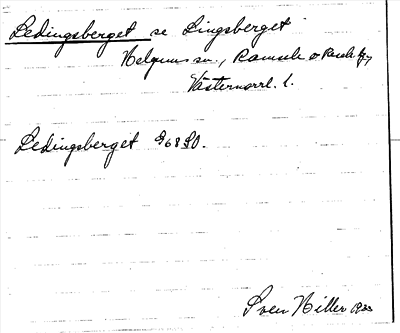 Ledingsberget se Lingsberget
Helgums sn, Ramsele o Resele tg
Västernorrl. l.
Ledingsberget G 68 SO.
Sven Hiller 1933